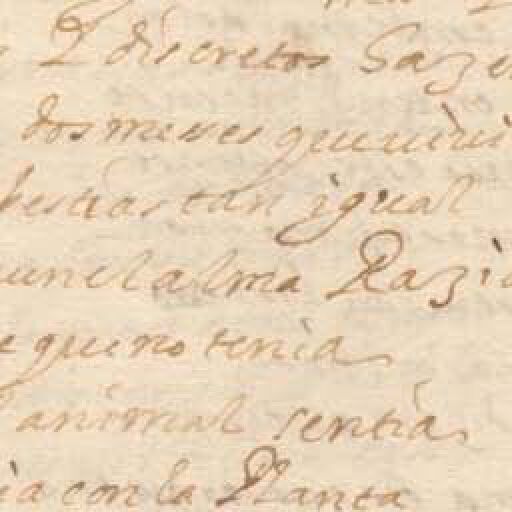 discretos Gaze
dos messes que uiui
bestias tan igual
un el alma Razio
que no tenia
animal sentia
ia con la Planta